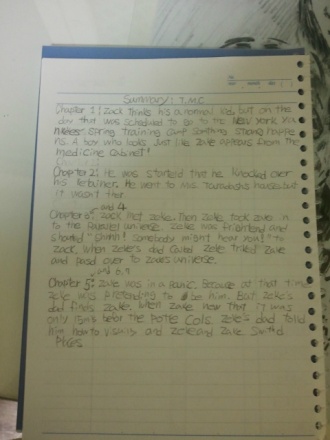 Summary: T.M.C
Chapter 1: Zack thinks his a normal kid, but on the
day that was scheduled to go to the New York Yan
spring training camp somthing strang happe
ns. A boy who looks Just like Zack appears from the
medicine cabinet!
Chapter 2: He was started that he knocked over
his retainer. He went to Mrs houses but
it wasn't ther
and 4
Chapter 3: Zack met zeke. Then zeke took zack in
to the universe. Zacke was and
shouted "Shhhh! Somebody might hear you!" to
Zack, when Zeke's dad called Zeke. Triked Zack
and pased over to Zacks universe.
and 6,7
Chapter 5: Zake was in a panic. Because at that time
Zeke was pretending to be him. But Zeke's
dad finds Zacke. When Zacke now that it was
only 15 min befor the Portle Cols. Zeke's dad told
him how to and Zeke and Zake Switd
Places